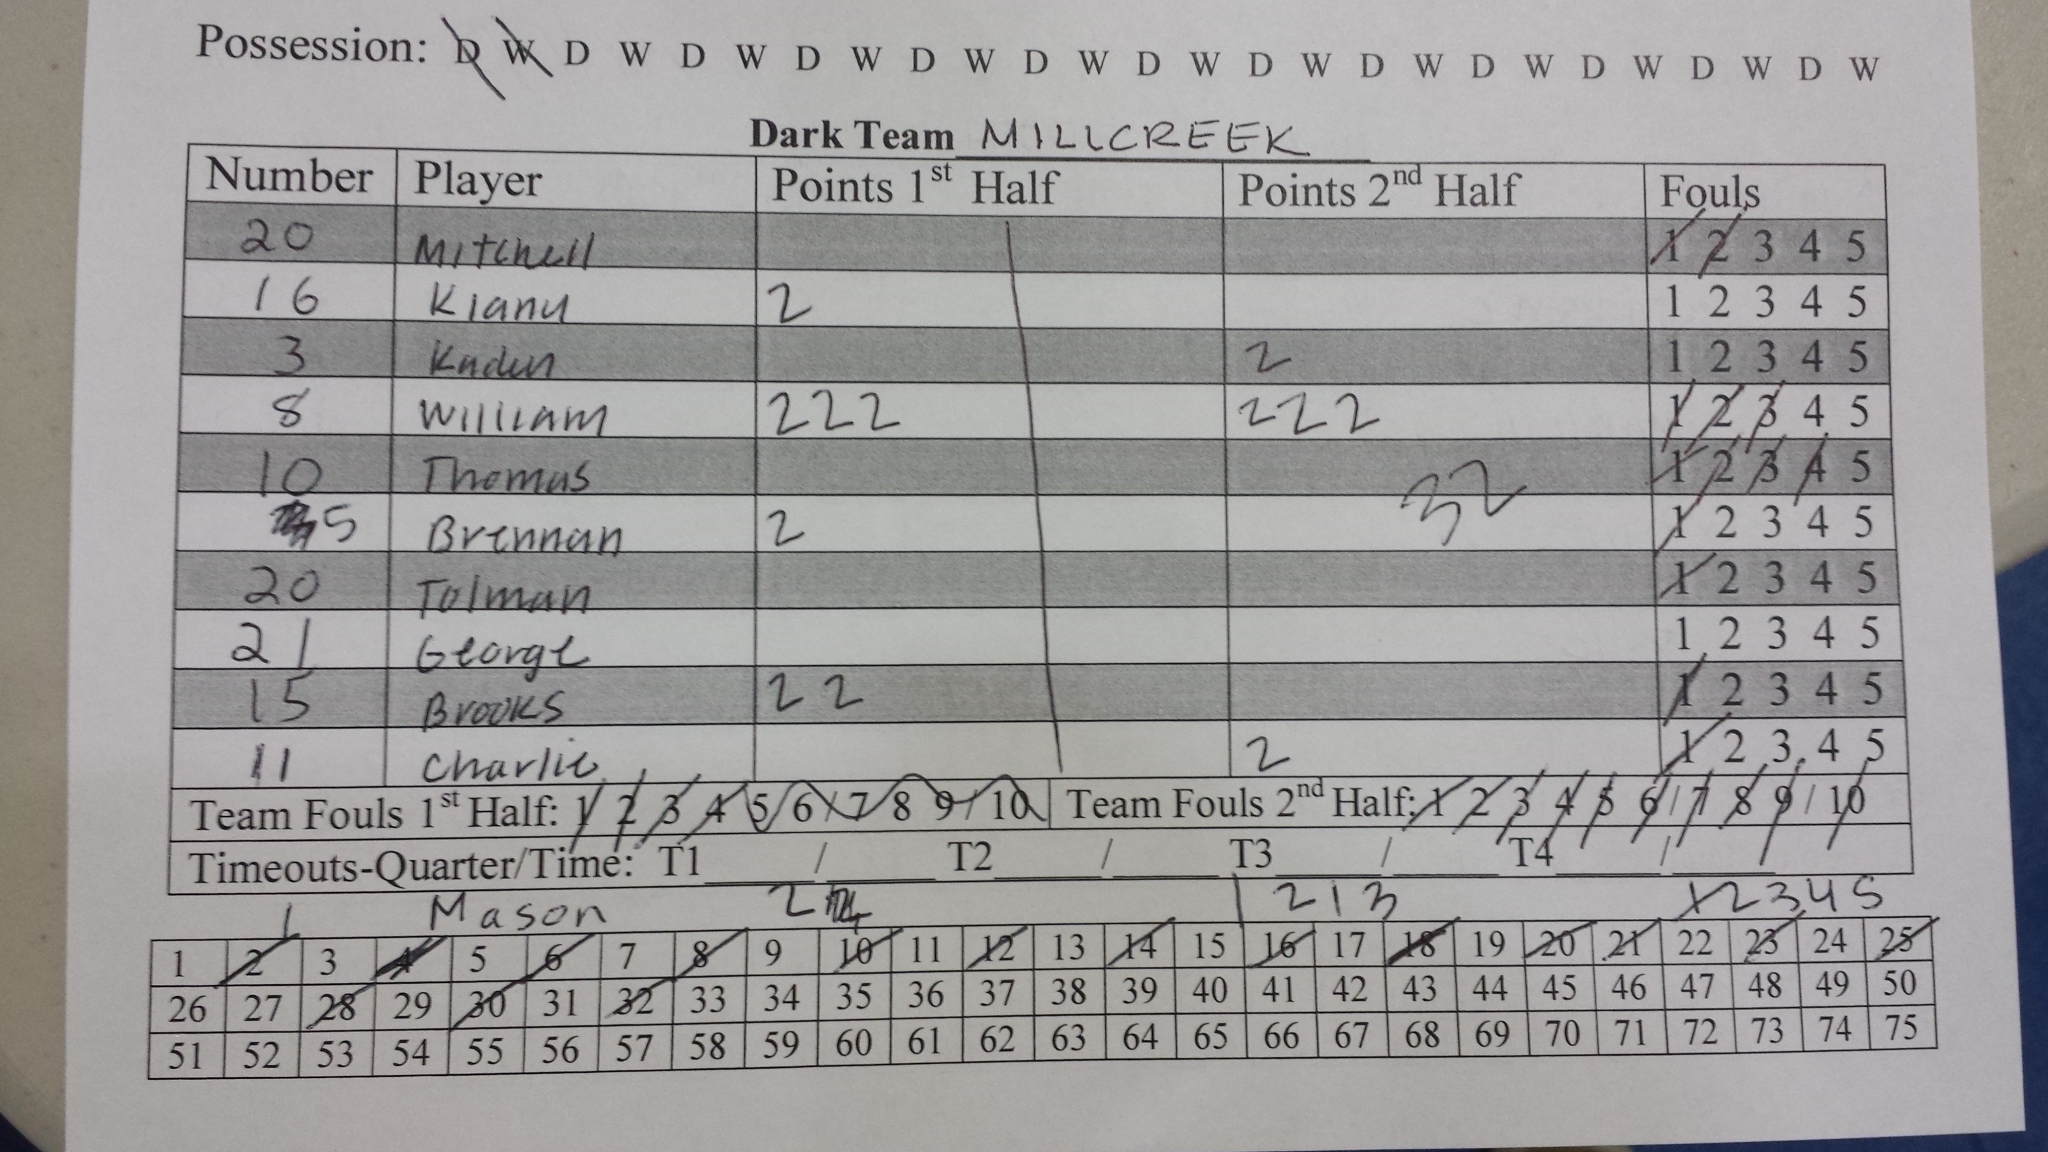 Possession: D W D W D W D W D W D W D W D W D W D W D W D W D W
Dark Team MILLCREEK
Number Player Points 1st Half Points 2nd Half Fouls
20 Mitchell 1 2 3 4 5
16 Kianu 2 1 2 3 4 5
3 Kaden 2 1 2 3 4 5
8 William 222 222 1 2 3 4 5
10 Thomas 1 2 3 4 5
32
5 Brennan 2 1 2 3 4 5
20 Tolman 1 2 3 4 5
21 George 1 2 3 4 5
15 Brooks 2 2 1 2 3 4 5
11 Charlie 2 1 2 3 4 5
Team Fouls 1st Half: 1 2 3 4 5 / 6 / 7 / 8 9 / 10 Team Fouls 2nd Half: 1 2 3 4 5 6 / 7 8 9 / 10
Timeouts-Quarter/Time: T1____/____ T2____/____ T3____/____ T4____/____
1 Mason 2 2 1 3 1 2 3 4 5
1 2 3 4 5 6 7 8 9 10 11 12 13 14 15 16 17 18 19 20 21 22 23 24 25
26 27 28 29 30 31 32 33 34 35 36 37 38 39 40 41 42 43 44 45 46 47 48 49 50
51 52 53 54 55 56 57 58 59 60 61 62 63 64 65 66 67 68 69 70 71 72 73 74 75